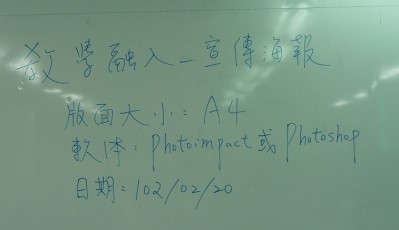 教學融入_宣傳海報
版面大小：A4
軟体：Photoimpact或Photoshop
日期：102/02/20